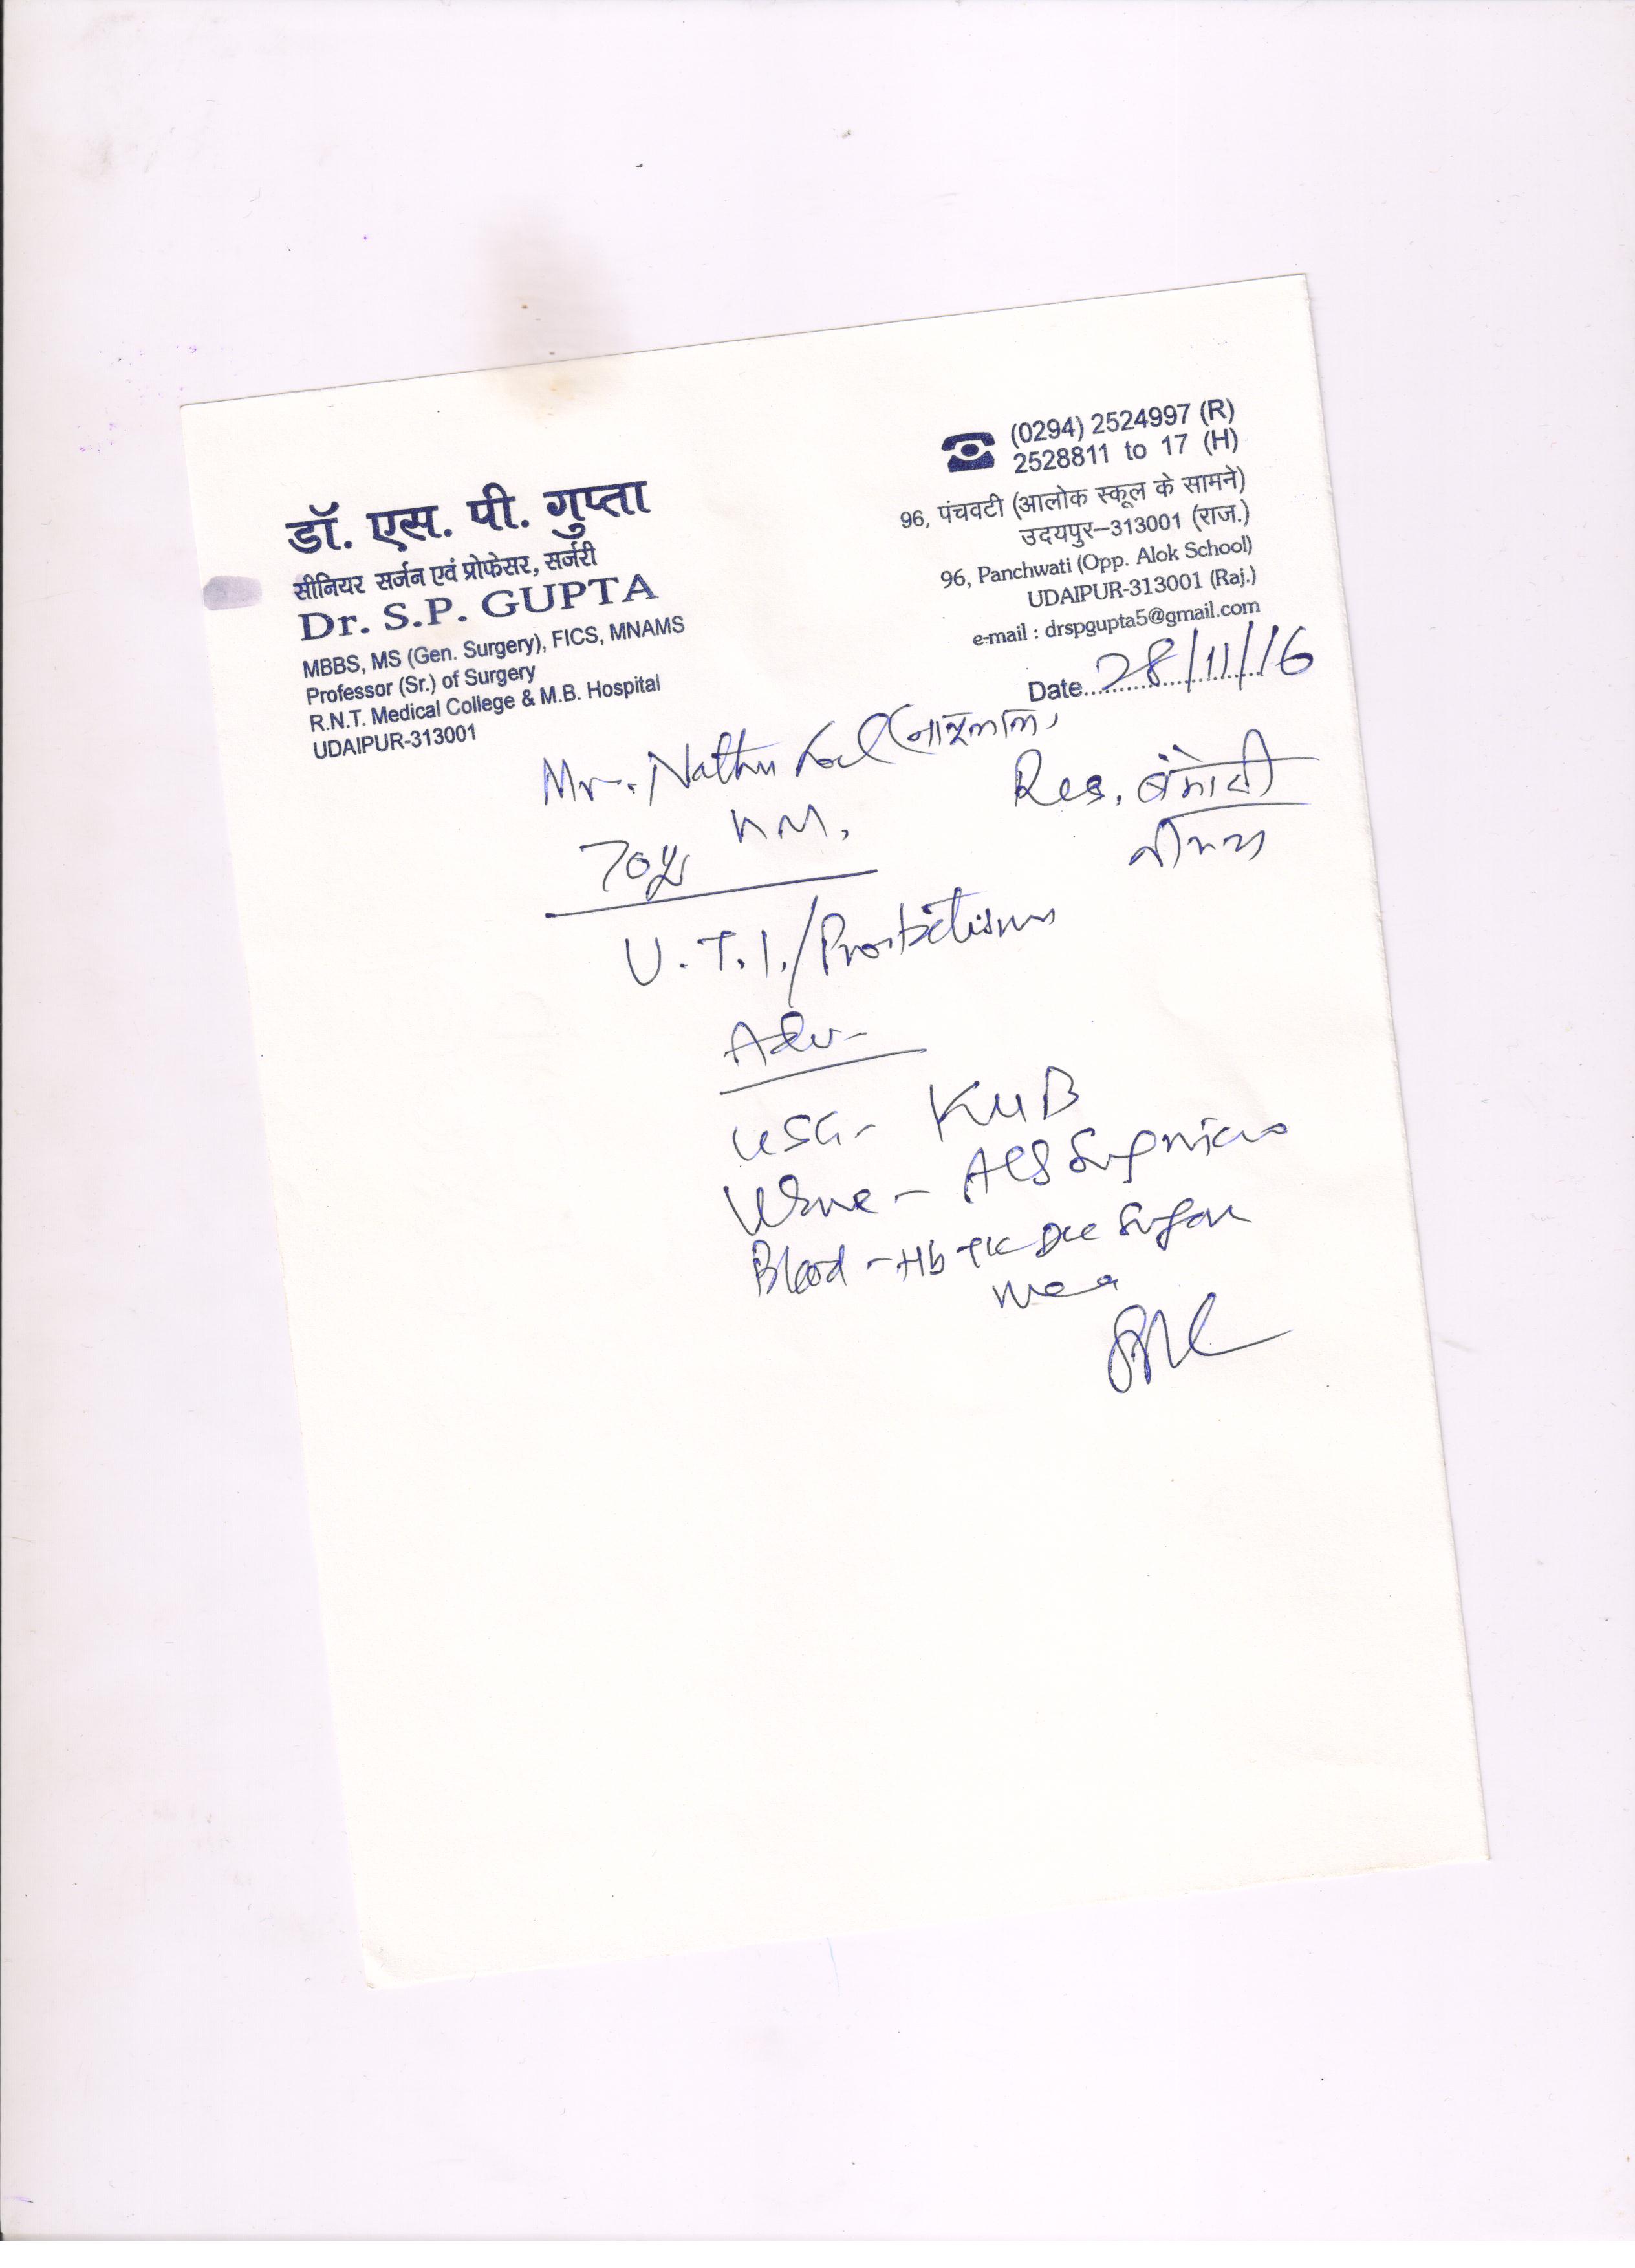 डॉ. एस. पी. गुप्ता
सीनियर सर्जन एवं प्रोफेसर, सर्जरी
Dr. S.P. GUPTA
MBBS, MS (Gen. Surgery), FICS, MNAMS
Professor (Sr.) of Surgery
R.N.T. Medical College & M.B. Hospital
UDAIPUR-313001
(0294) 2524997 (R)
2528811 to 17 (H)
96, पंचवटी (आलोक स्कूल के सामने)
उदयपुर–313001 (राज.)
96, Panchwati (Opp. Alok School)
UDAIPUR-313001 (Raj.)
e-mail : drspgupta5@gmail.com
Date 28/11/16
Mr. Nathu Lal
70y
Res.
U.T.I./Prostatism
Adv-
USG- KUB
Urine - Alb Sug micro
Blood - Hb TLC DLC Sugar